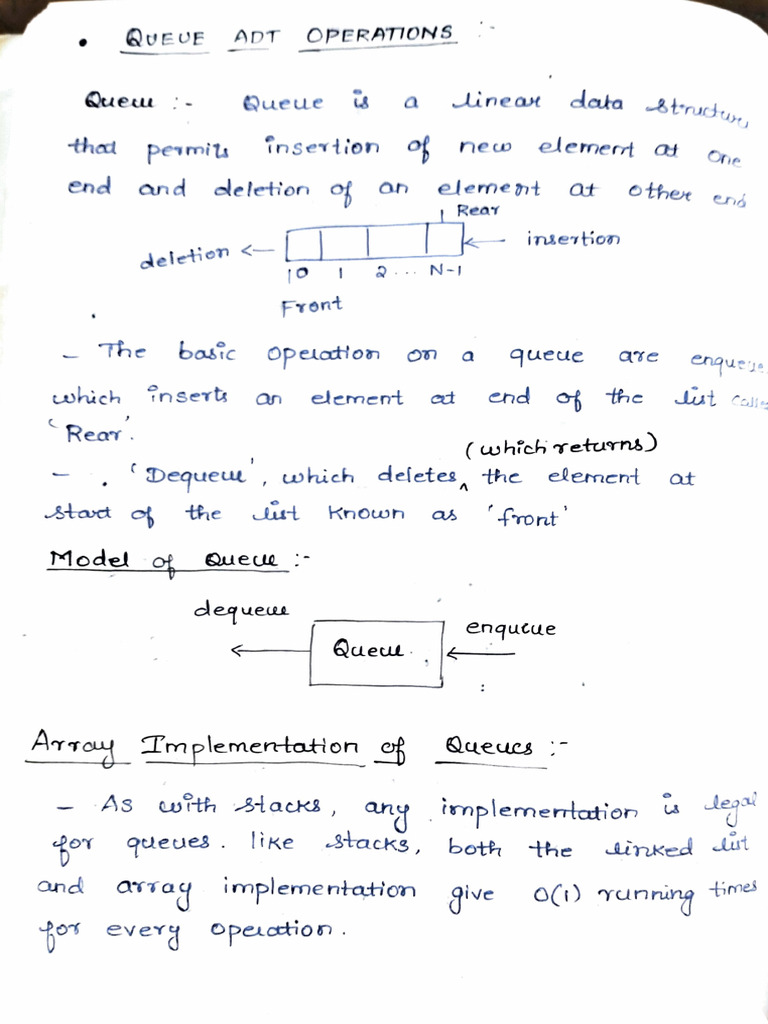 • QUEUE ADT OPERATIONS :-
Queue :- Queue is a linear data structure,
that permits insertion of new element at one
end and deletion of an element at other end
Rear
deletion ← ← insertion
0 1 2 ... N-1
Front
- The basic operation on a queue are enqueue
which inserts an element at end of the list called
'Rear'.
(which returns)
- . 'Dequeue', which deletes ^ the element at
start of the list known as 'front'
Model of Queue :-
dequeue
enqueue
Queue
Array Implementation of Queues :-
- As with stacks, any implementation is legal
for queues. like stacks, both the linked list
and array implementation give O(1) running times
for every operation.